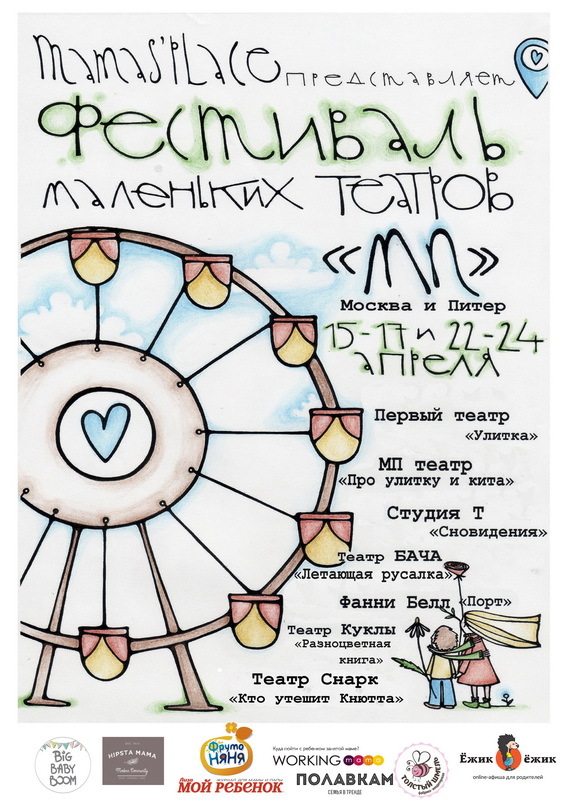 MAMAS'PLACE представляет
Фестиваль
маленьких театров
«МП»
Москва и Питер
15-17 и 22-24
апреля
Первый театр
«Улитка»
МП театр
«Про улитку и кита»
Студия Т
«Сновидения»
Театр БАЧА
«Летающая русалка»
Фанни Белл «Порт»
Театр Куклы
«Разноцветная
книга»
Театр Снарк
«Кто утешит Кнютта»
BIG
BABY
BOOM
HIPSTA MAMA
Modern Community
фруто
няня
Лиза
ЖУРНАЛ ДЛЯ МАМЫ И ПАПЫ
МОЙ РЕБЕНОК
Куда пойти с ребенком занятой маме?
WORKING mama
ПОЛАВКАМ
СЕМЬЯ В ТРЕНДЕ
ТОЛСТЫЙ ШМЕЛЬ
Ёжик ёжик
online-афиша для родителей